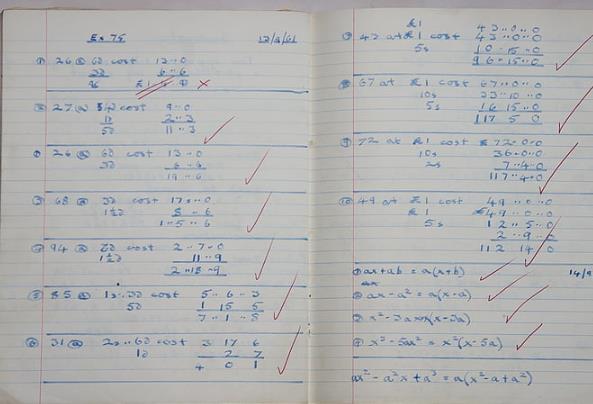 Ex 75 12/9/61
① 26 @ 6d cost 13 .. 0
3d 6 .. 6
② 27 @ 4d cost 9 .. 0
1d 2 .. 3
5d 11 .. 3
① 26 @ 6d cost 13 .. 0
3d 6 .. 6
19 .. 6
③ 68 @ 3d cost 17 .. 0
1½d 8 .. 6
1 .. 5 .. 6
④ 94 @ cost 2 .. 7 .. 0
1½d 11 .. 9
2 .. 18 .. 9
⑤ 85 @ 1s .. 3d cost 5 .. 6 .. 3
5d 1 15 5
7 .. 1 .. 8
⑥ 31 @ 2s .. 6d cost 3 17 6
1d 2 7
4 0 1
£1 43 .. 0 .. 0
⑦ 43 at £1 cost 43 .. 0 .. 0
5s 10 .. 15 .. 0
96 .. 15 .. 0
⑧ 67 at £1 cost 67 .. 0 .. 0
10s 33 .. 10 .. 0
5s 16 15 .. 0
117 5 0
⑨ 72 at £1 cost £ 72 .. 0 .. 0
10s 36 .. 0 .. 0
2s 7 .. 4 .. 0
⑩ 49 at £1 cost 49 .. 0 .. 0
£1 49 .. 0 .. 0
5s 12 .. 5 .. 0
2 .. 9 .. 0
112 14 0
① ax + ab = a(x + b) 14/9
② ax - a² = a(x - a)
④ x³ - 5ax² = x²(x - 5a)
ax² - a²x + a³ = a(x² - a + a²)